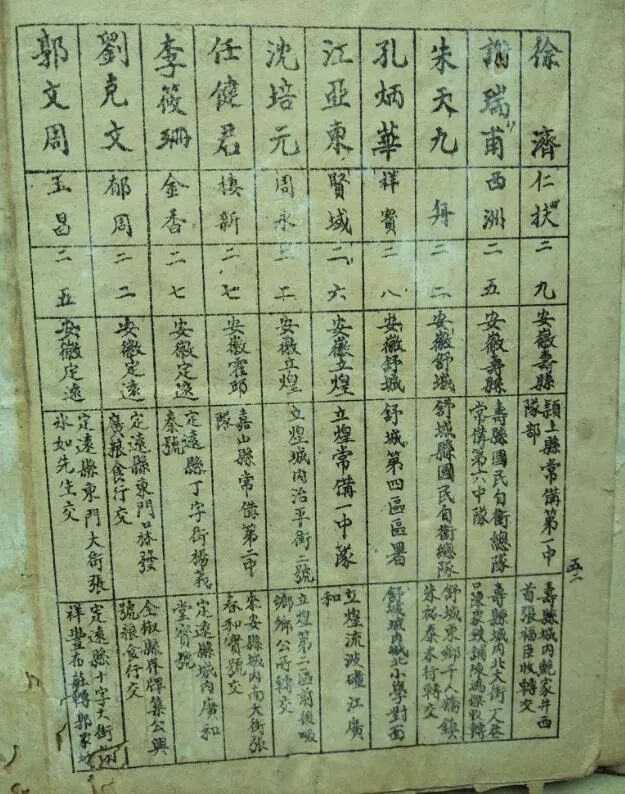 徐濟
仁扶
二九
安徽壽縣
潁上縣常備第一中
隊部
壽縣城內鮑家井西
首張福臣收轉交
謝瑞甫
西洲
二五
安徽壽縣
壽縣國民自衛總隊
常備第六中隊
壽縣城內北大街
朱天九
二二
安徽舒城
舒城縣國民自衛總隊
舒城東鄉千人橋鎮
朱裕泰米行轉交
孔炳華
祥賓
二八
安徽舒城
舒城第四區區署
舒城城內城北小學對面
江亞東
賢城
二六
安徽立煌
立煌常備一中隊
立煌流波䃥江廣
和
沈培元
周永
二二
安徽立煌
立煌城內治平街二號
立煌第二區前後畈
鄉鄉公所轉交
任健君
棲新
二七
安徽霍邱
嘉山縣常備第二中
隊
來安縣城內南大街張
春和寶號交
李筱珊
金香
二七
安徽定遠
定遠縣丁字街楊義
泰號
定遠縣城內廣和
堂寶號
劉克文
郁周
二二
安徽定遠
定遠縣東門口林發
廣粮食行交
全椒縣界牌集公興
號粮食行交
郭文周
玉昌
二五
安徽定遠
定遠縣東門大街張
冰如先生交
定遠縣十字大街
祥豐布莊轉郭家
五二